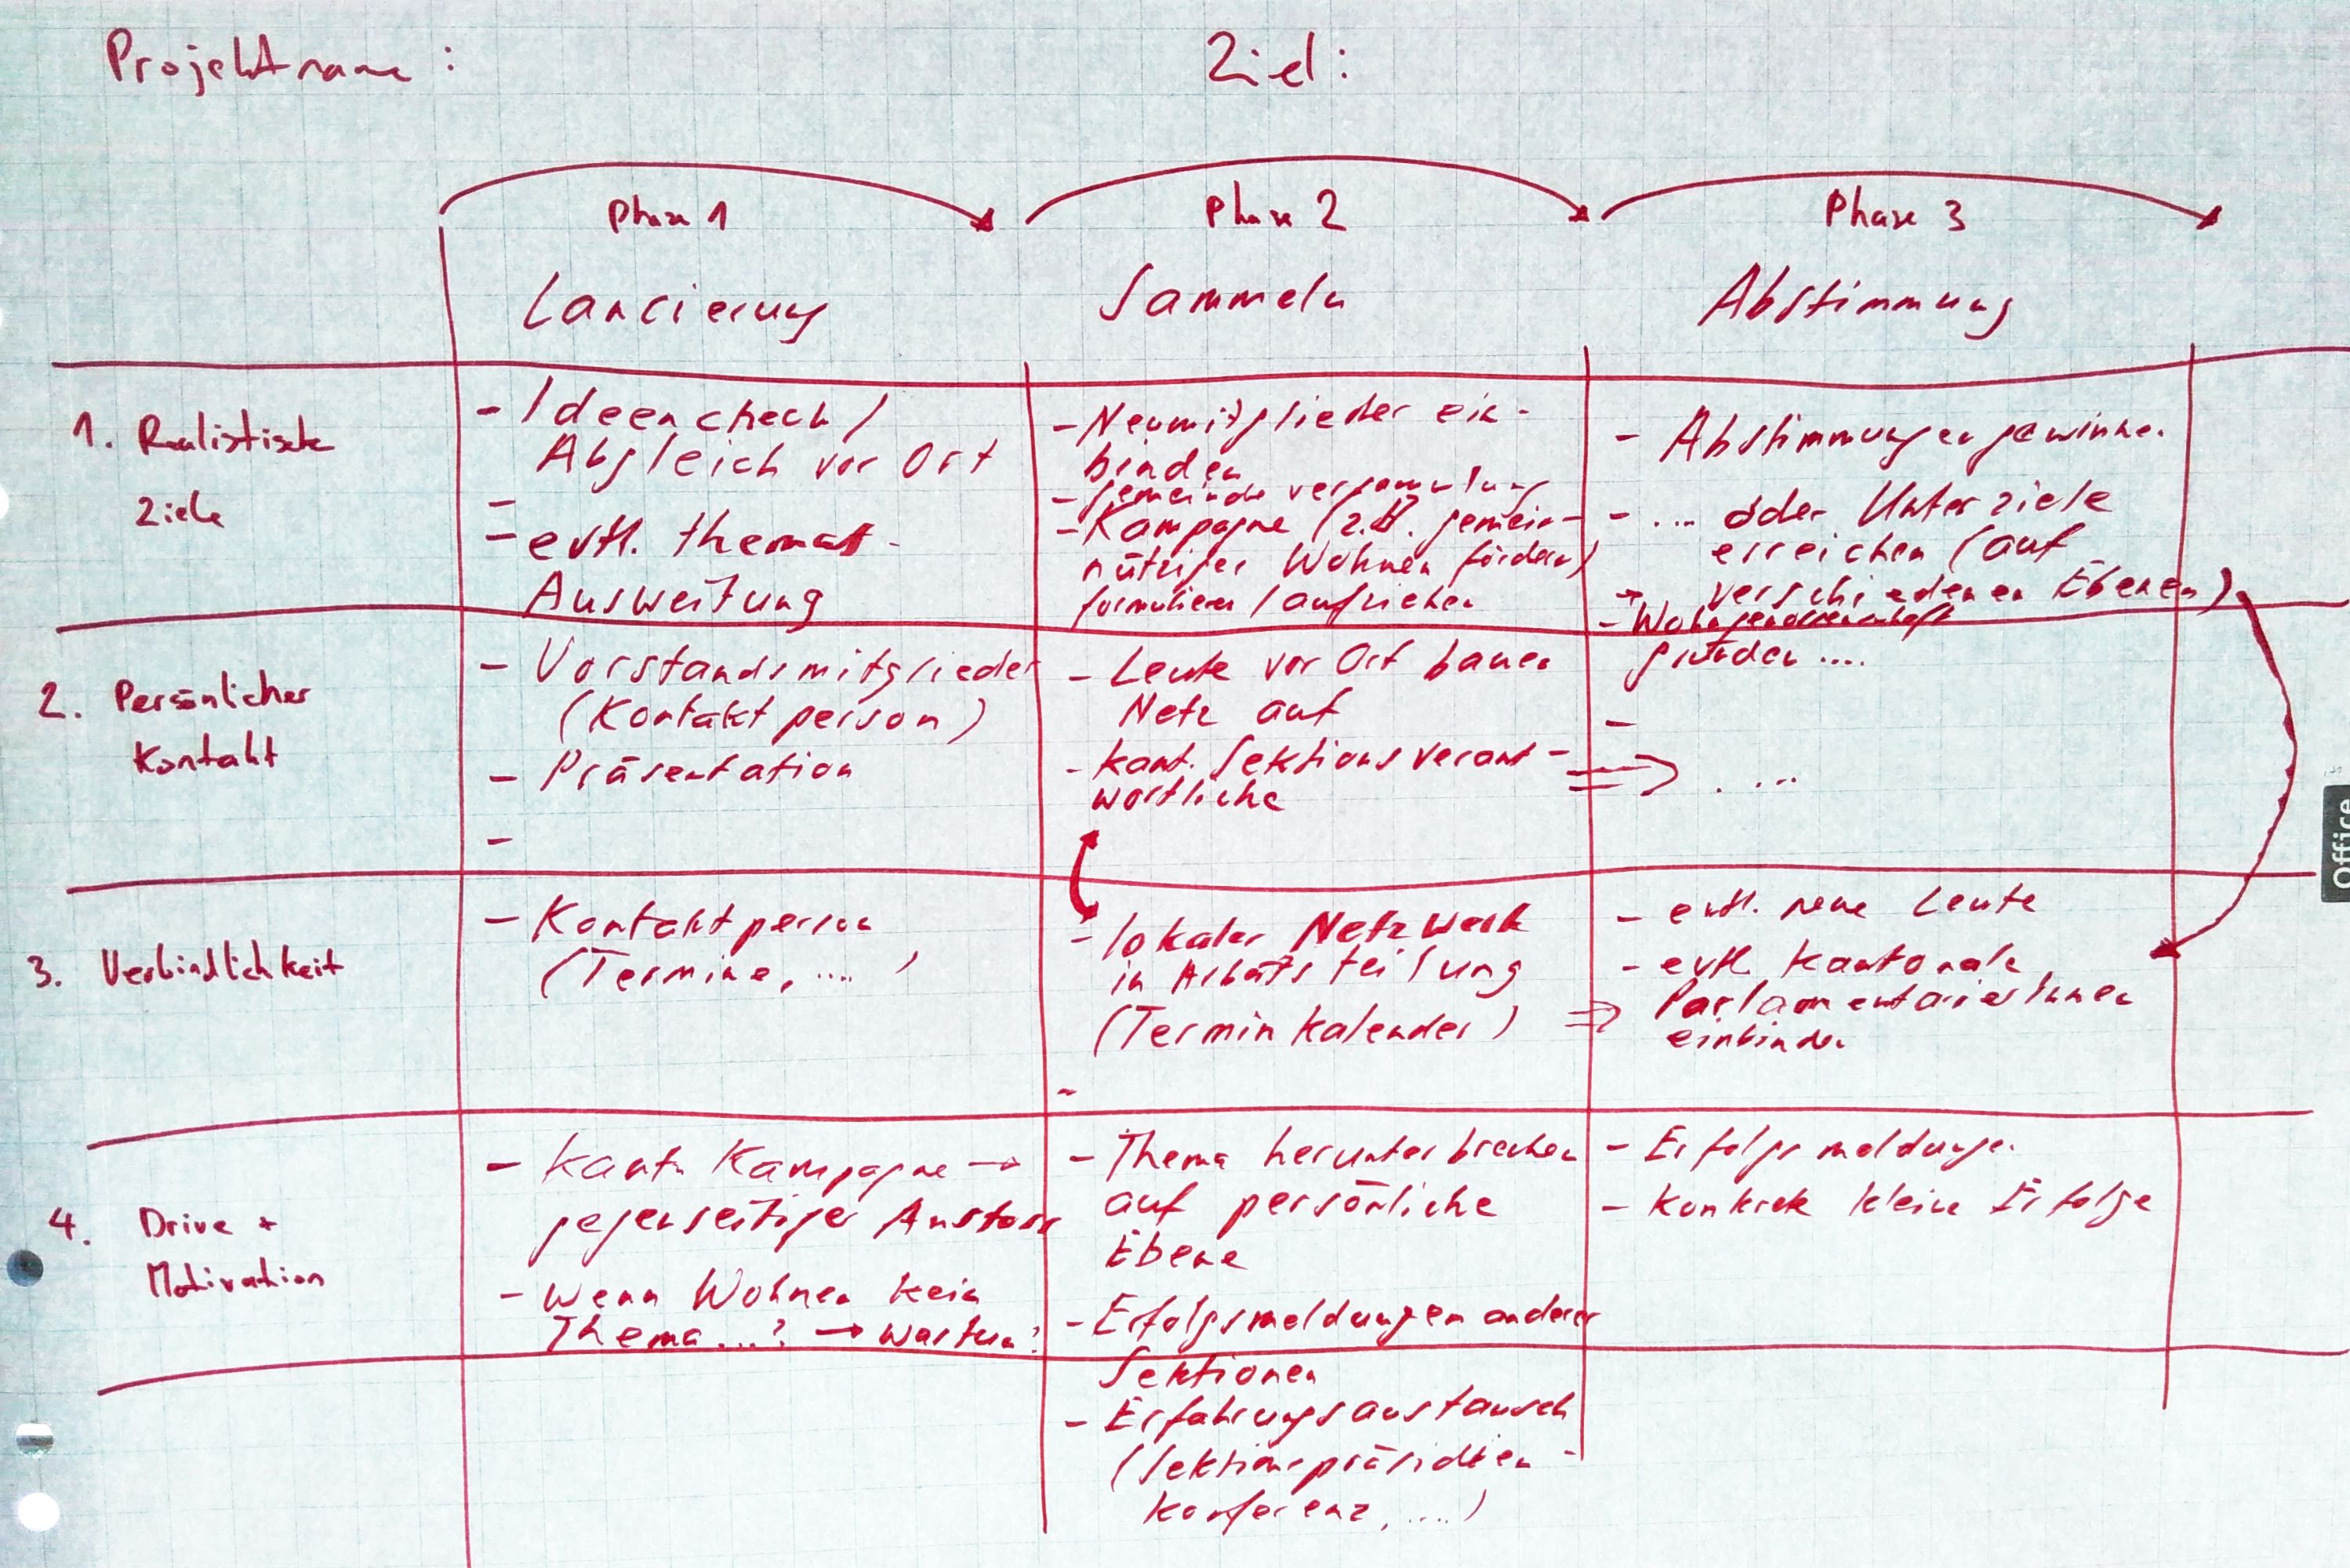 Projektname :
Ziel :
Phase 1
Phase 2
Phase 3
Lancierung
Sammeln
Abstimmung
1. Realistische
Ziele
- Ideencheck /
Abgleich vor Ort
-
- evtl. themat.
Ausweitung
- Neumitglieder ein-
binden
- Gemeindeversammlung
- Kampagne (z.B. gemein-
nütziger Wohnen fördern)
formulieren / aufziehen
- Abstimmungen gewinnen
- .... oder Unterziele
erreichen (auf
verschiedenen Ebenen)
- Wohngenossenschaft
gründen ....
2. Persönlicher
Kontakt
- Vorstandsmitglieder
(Kontaktperson)
- Präsentation
-
- Leute vor Ort bauen
Netz auf
- kant. Sektionsverant-
wortliche
-
⇒ . ...
3. Verbindlichkeit
- Kontaktperson
(Termine, .... )
- lokales Netzwerk
in Arbeitsteilung
(Terminkalender)
-
- evtl. neue Leute
- evtl. kantonale
⇒ ParlamentarierInnen
einbinden
4. Drive +
Motivation
- kant. Kampagne →
gegenseitiger Anstoss
- Wenn Wohnen kein
Thema...? → warten?
- Thema herunterbrechen
auf persönliche
Ebene
- Erfolgsmeldungen anderer
Sektionen
- Erfahrungsaustausch
(Sektionspräsidien-
konferenz, ....)
- Erfolgsmeldungen
- konkrete kleine Erfolge
Office